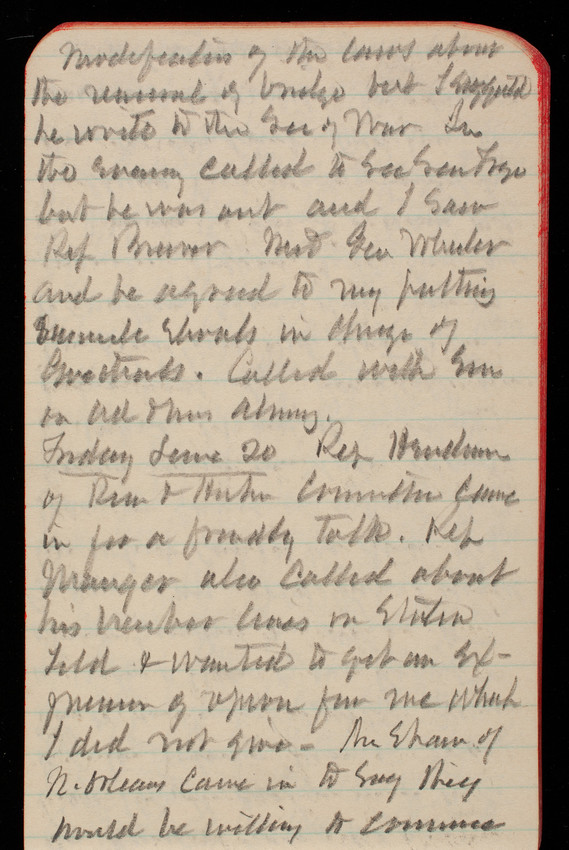 Modification of the laws about
the removal of bridge but I suggested
he write to the Sec of War In
the evening called to See Gen
but he was out and I Saw
Rep Met Gen Wheeler
and he agreed to my putting
Muscle Shoals in charge of
Goethals. Called with Em
on
Friday June 20 Rep Henderson
of Riv & Harbor Committee Came
in for a friendly Talk. Rep
also Called about
his harbor lines on Staten
Isld & wanted to get an Ex-
pression of opinion from me which
I did not give – Mr Shaw of
N. Orleans Came in to Say they
would be willing to commence